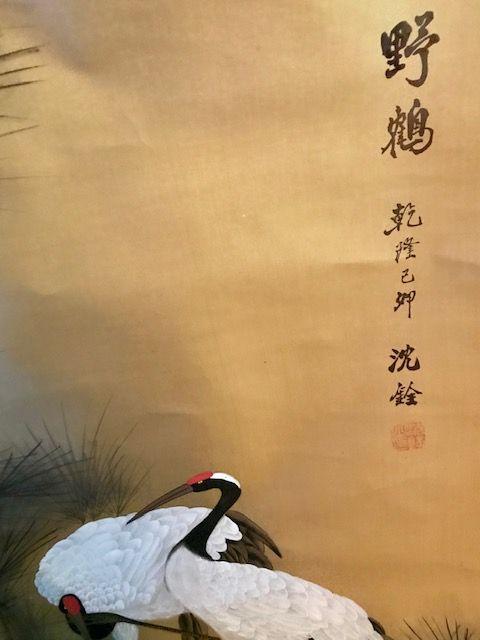 野鶴
乾隆己卯
沈銓